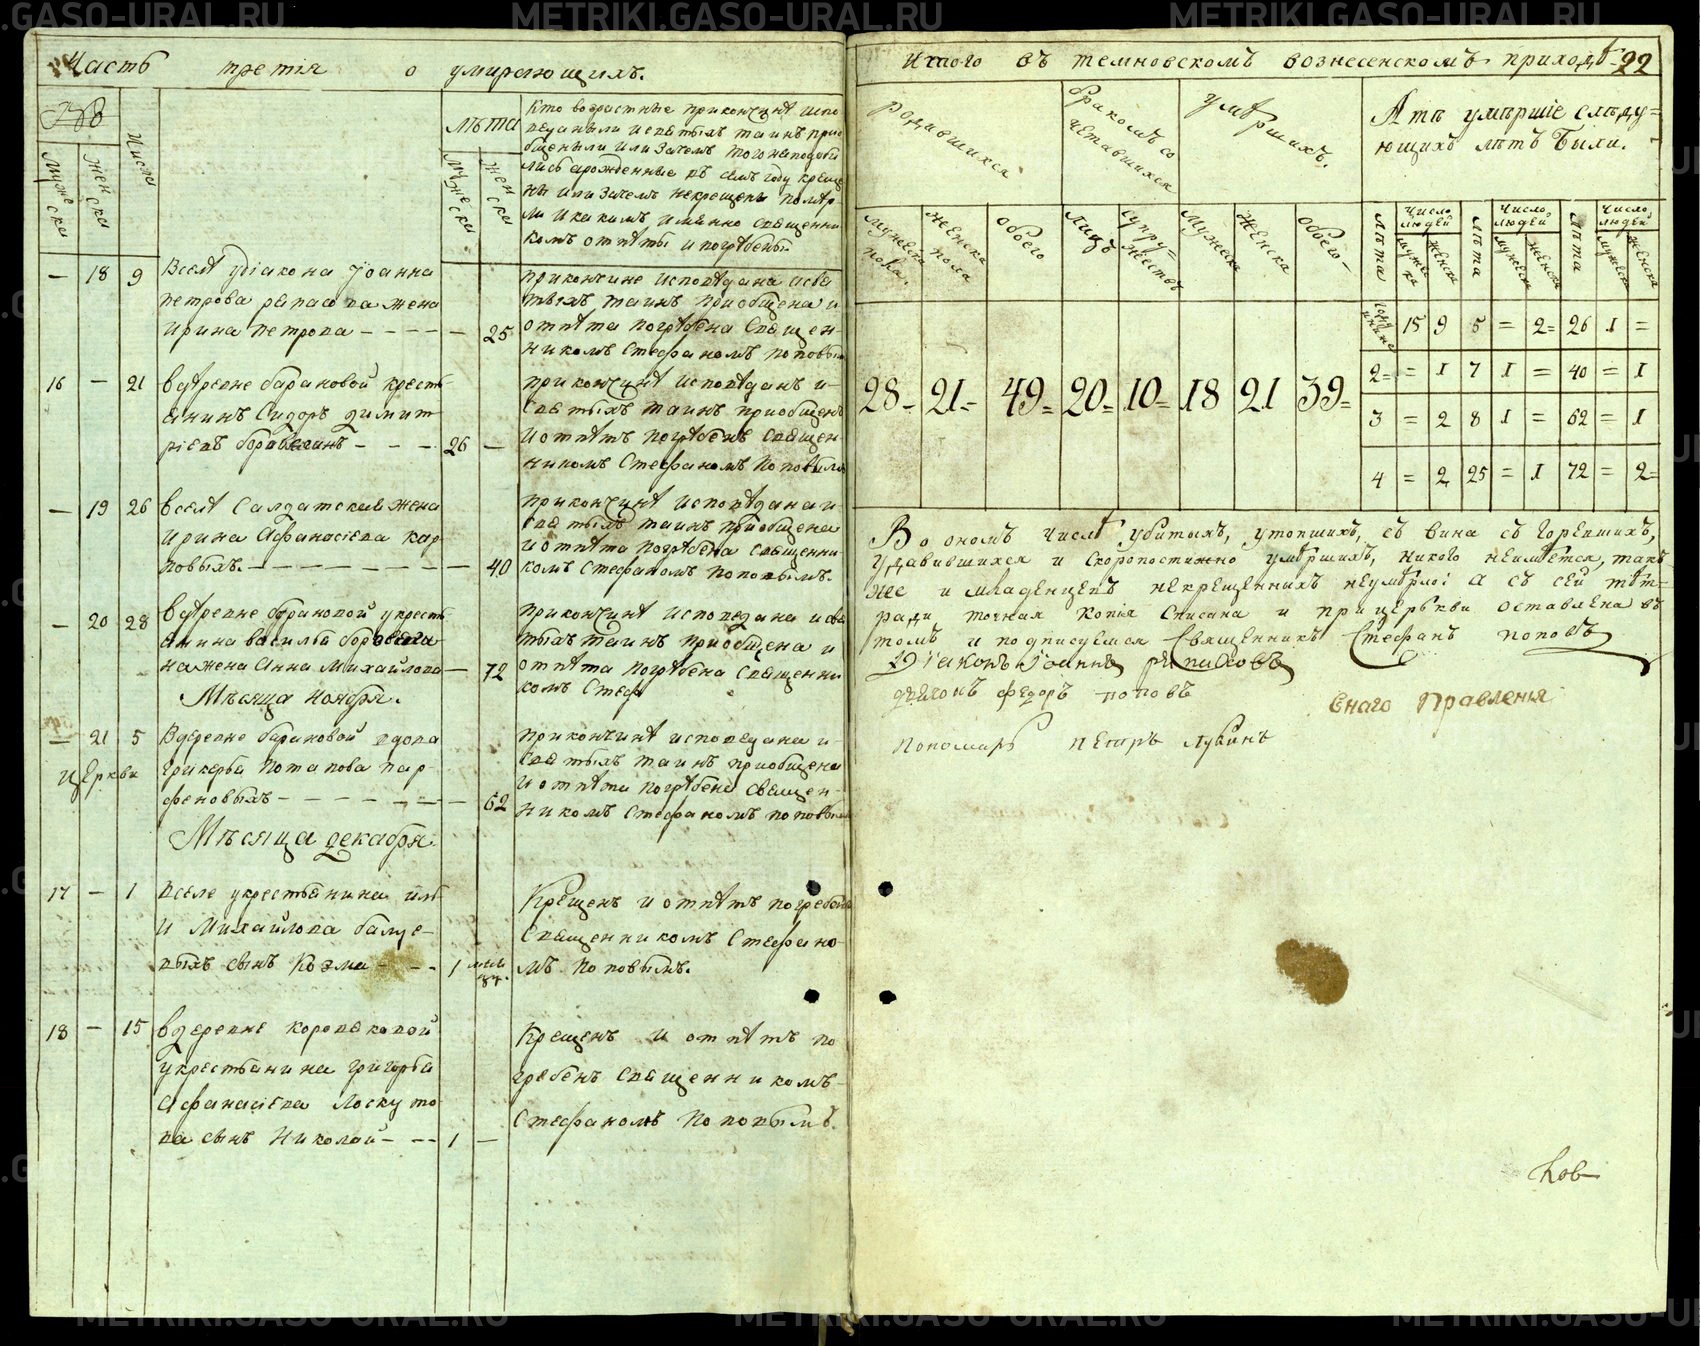 METRIKI.GASO-URAL.RU
Часть третія о умирающихъ.
№
Мужеска
Женска
Числа
Лѣта
Мужеска
Женска
Кто возрастные прикончинѣ испо
веданы ли исвѣтыхъ таинъ прио
бщены ли или зачемъ того неподоби
лись арожденные въ семъ году креще
ны или зачемъ некрещены помѣр
ли и какимъ имянно священни
комъ отпѣты и погрѣбены
— 18 9 Вселѣ удіакона Іоанна
петрова репасова жена
ирина петрова — — — — — 25
прикончине исповѣдана исве
тыхъ таинъ приобщена и
отпѣта погрѣбена священ
никомъ Стефаномъ поповым
16 — 21 Вдеревне барановой кресть
енинъ Сидоръ димит
ріевъ — — — 26 —
прикончинѣ исповѣданъ и
светыхъ таинъ приобщенъ
и отпѣтъ погрѣбенъ священ
никомъ Стефаномъ Поповымъ
— 19 26 Вселѣ Салдатская жена
ирина Афанасіева кар
повыхъ. — — — — — — — — 40
прикончинѣ исповѣдана и
светыхъ таинъ приобщена
и отпѣта погрѣбена священни
комъ Стефаномъ поповымъ.
— 20 28 Вдеревне барановой укресть
енина василья
на жена Анна Михайлова — 72
прикончинѣ исповедана и све
тыхъ таинъ приобщена и
отпѣта погрѣбена священни
комъ Стеф
Мѣсяца ноября.
— 21 5 Вдеревне барановой вдова
гликерья Потапова пар
феновыхъ — — — — — — — 62
церкви
прикончинѣ исповедана и
светыхъ таинъ приобщена
и отпѣта погрѣбена священ
никомъ Стефаномъ поповым
Мѣсяца декабря
17 — 1 Вселе укрестьенина иль
и Михайлова балуе
выхъ сынъ Козма — — 1
Крещенъ и отпѣтъ погребенъ
Священникомъ Стефано
мъ Поповымъ.
18 — 15 Вдеревне
укрестьенина григорья
Афанасіева Лоскуто
ва сынъ Николай — — — 1 —
Крещенъ и отпѣтъ по
гребенъ священникомъ
Стефаномъ Поповымъ.
Итого въ темновскомъ вознесенскомъ приходѣ 22
Родившихся
бракомъ со
четавшихся
умѣршихъ.
Атѣ умѣршіе слѣду=
ющихъ лѣтъ были.
Мужеска пола.
Женска пола
Обоего
Лицъ
Супружествъ
Мужеска
Женска
Обоего
Лѣта
Число людей
Мужеска
Женска
Лѣта
Число людей
Мужеск
Женска
Лѣта
Число людей
Мужеска
Женска
28 21 49 20 10 18 21 39
15 9 5 = 2 26 1 =
2 = 1 7 1 = 40 = 1
3 = 2 8 1 = 62 = 1
4 = 2 25 = 1 72 = 2
Во ономъ числѣ убитыхъ, утопшихъ, съ вина сгоревшихъ,
удавившихся и скоропостижно умѣршихъ, никого неимѣется, так
же и младенцевъ некрещенныхъ неумѣрло: А съ сей тѣт=
ради точная копія списана и прицеркви оставлена въ
томъ и подписуемся Священникъ Стефанъ поповъ
Діаконъ Іоаннъ репасовъ
дьячокъ Федоръ поповъ
Пономарь петръ
Енаго Правленья
ков